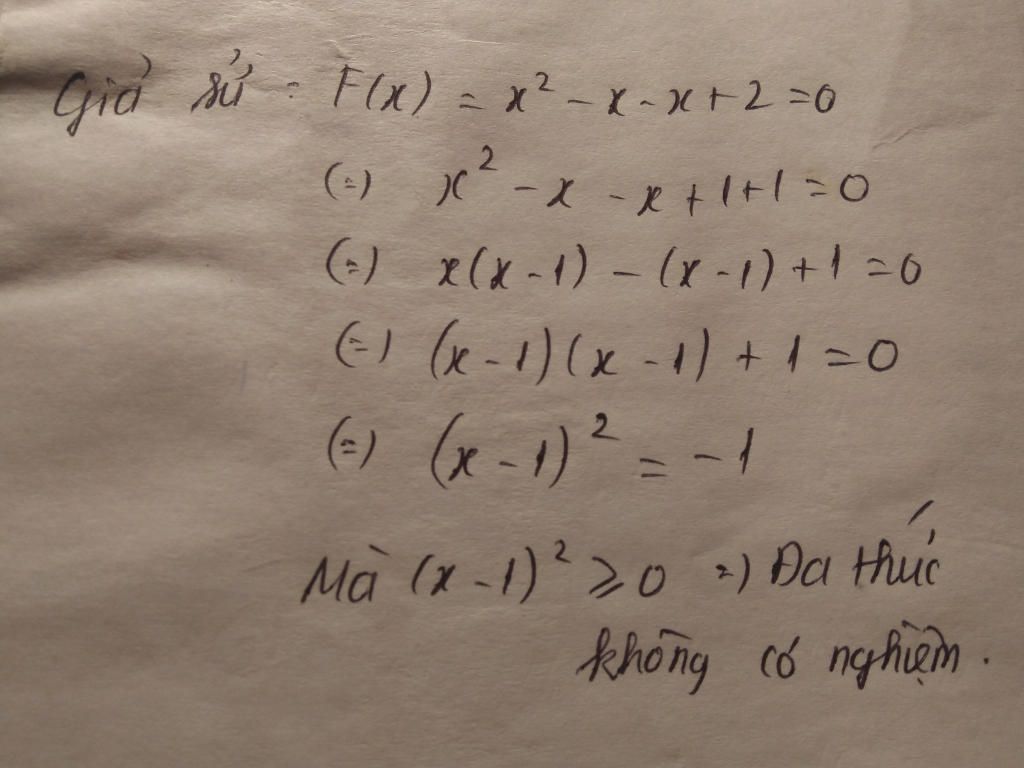 Giả sử : F(x) = x² - x - x + 2 = 0
(=) x² - x - x + 1 + 1 = 0
(=) x(x - 1) - (x - 1) + 1 = 0
(=) (x - 1)(x - 1) + 1 = 0
(=) (x - 1)² = -1
Mà (x - 1)² ⩾ 0 =) Đa thức
không có nghiệm.